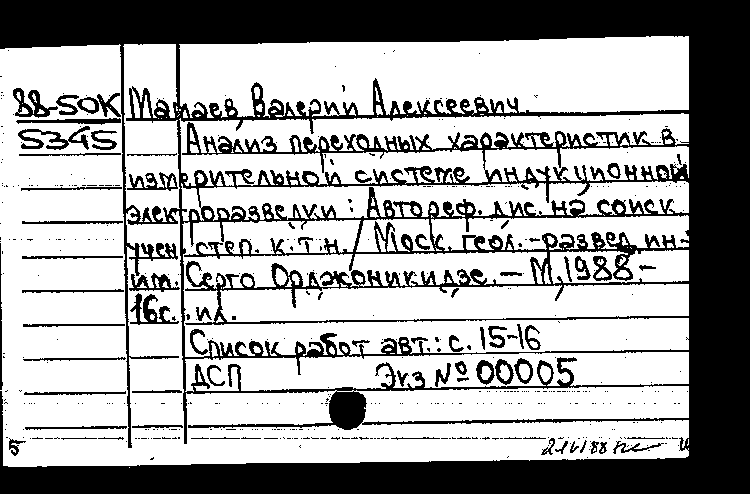 88-50К Матаев, Валерий Алексеевич.
5345 Анализ переходных характеристик в
измерительной системе индукционной
электроразведки : Автореф. дис. на соиск.
учен. степ. к.т.н. / Моск. геол.-развед. ин-
им. Серго Орджоникидзе. – М., 1988.-
16с. : ил.
Список работ авт.: с. 15-16
ДСП Экз № 00005
5